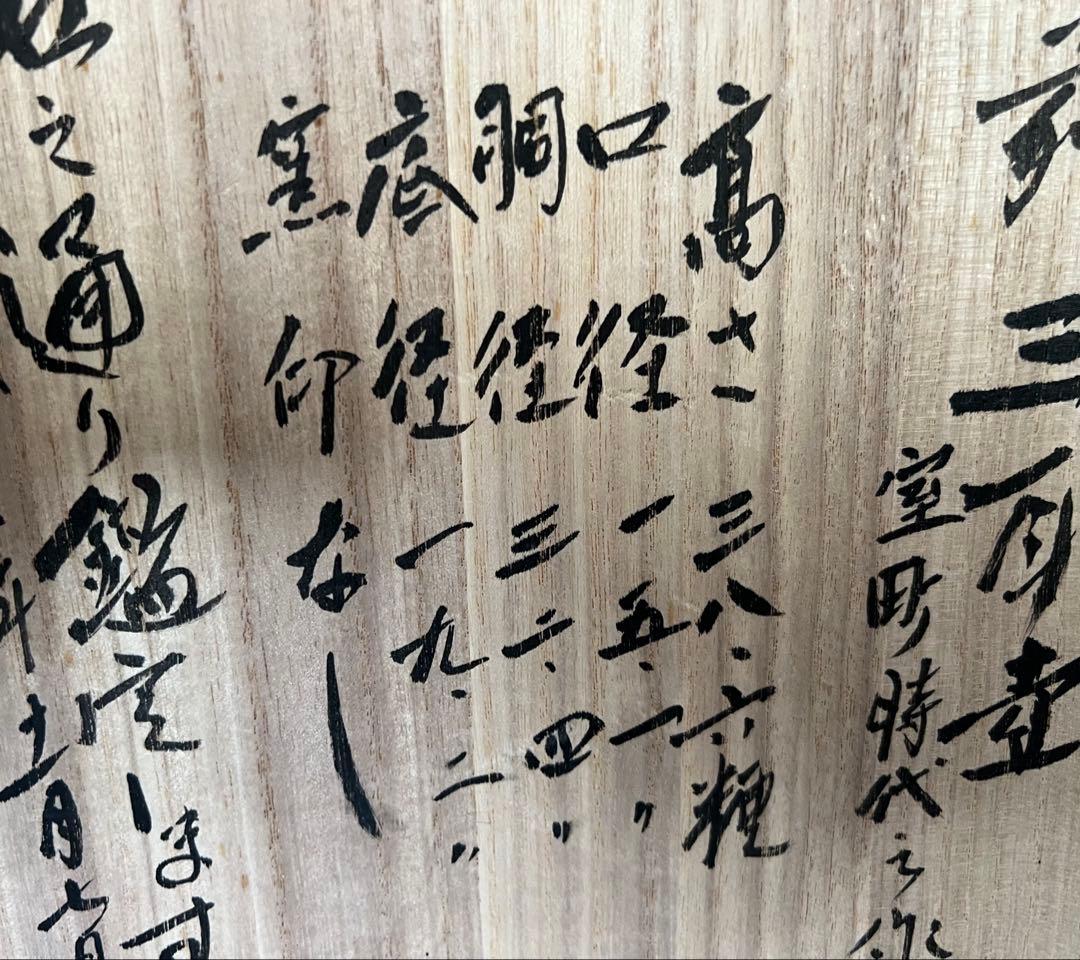 三耳壺
室町時代之作
高さ 三八、六糎
口径 一五、一〃
胴径 三二、四〃
底径 一九、二〃
窯印なし
之通り鑑定します
年十一月七日